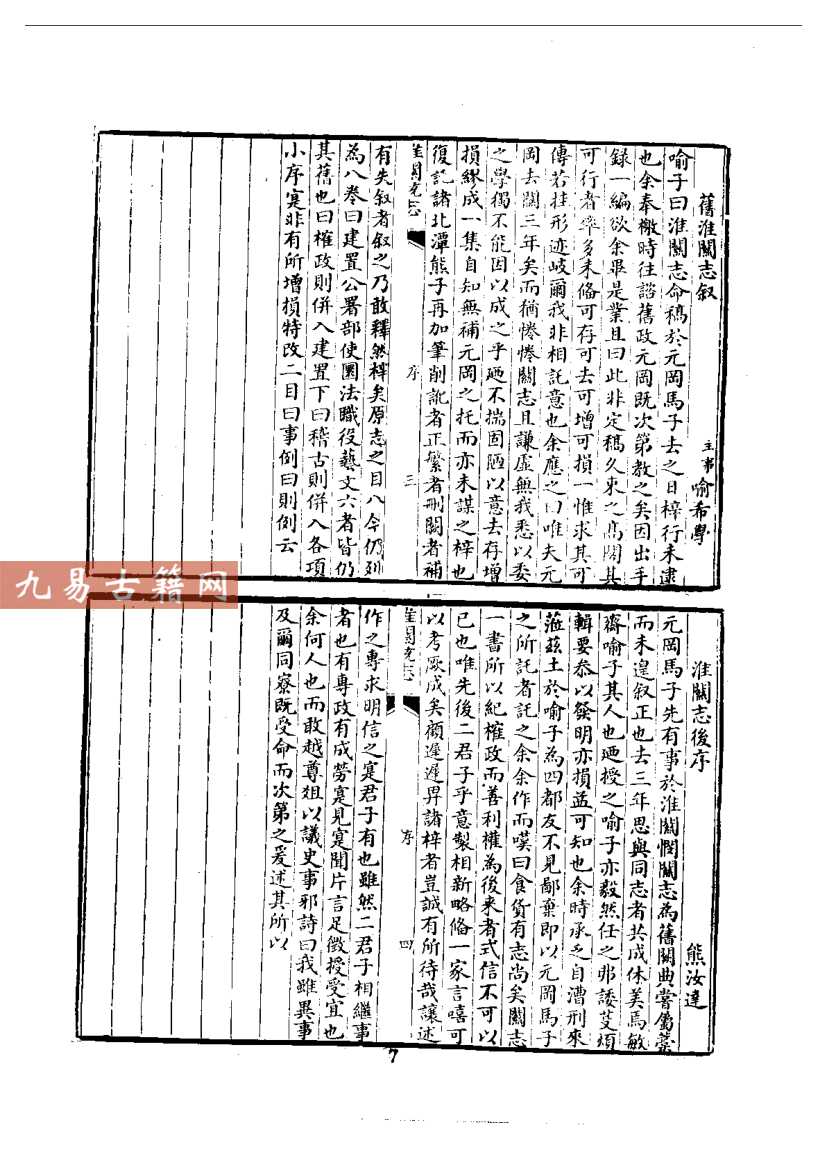 舊淮關志叙
主事喻希學
喻子曰淮關志命稿於元岡馬子去之日梓行未逮
也余奉檄時往諮舊政元岡既次第教之矣因出手
録一編欲余畢是業且曰此非定稿久來之高閣其
可行者率多未偹可存可去可增可損一惟求其可
傳若挂形迹岐爾我非相託意也余應之曰唯夫元
岡去關三年矣而猶惓惓關志且謙虚無我悉以委
之學獨不能因以成之乎廼不揣固陋以意去存增
損繆成一集自知無補元岡之托而亦未謀之梓也
復託諸北潭熊子再加筆削訛者正繁者刪闕者補
淮關統志
序
三
有失叙者叙之乃敢釋然梓矣原志之目八今仍列
為八卷曰建置公署部使圜法職役藝文六者皆仍
其舊也曰榷政則併入建置下曰稽古則併入各項
小序寔非有所增損特改二目曰事例曰則例云
淮關志後序
熊汝達
元岡馬子先有事於淮關憫關志為舊闕典嘗屬藁
而未遑叙正也去三年思與同志者共成休美焉敏
齋喻子其人也廼授之喻子亦毅然任之那諉芟煩
輯要恭以發明亦損益可知也余時承乏自漕刑來
蒞兹土於喻子為四郡友不見鄙棄即以元岡馬子
之所託者託之余余作而嘆曰食貨有志尚矣關志
一書所以紀榷政而善利權為後来者式信不可以
已也唯先後二君子乎意製相新略偹一家言嘻可
以考厥成矣顧遲遲畀諸梓者豈誠有所待哉讓述
淮關統志
序
四
作之專求明信之寔君子有也雖然二君子相繼事
者也有專政有成勞寔見寔聞片言足徵授受宜也
余何人也而敢越尊俎以議史事邪詩曰我雖異事
及爾同寮既受命而次第之爰述其所以
7
九易古籍网